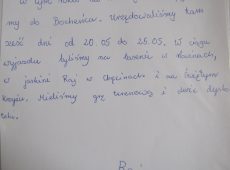 my do Bocheńca. Urzędowaliśmy tam
sześć dni od 20.05 do 25.05. W ciągu
wyjazdu byliśmy na basenie w Kielcach,
w jaskini Raj w Chęcinach i na Świętym
Krzyżu. Mieliśmy grę terenową i dwie dysko
teki.